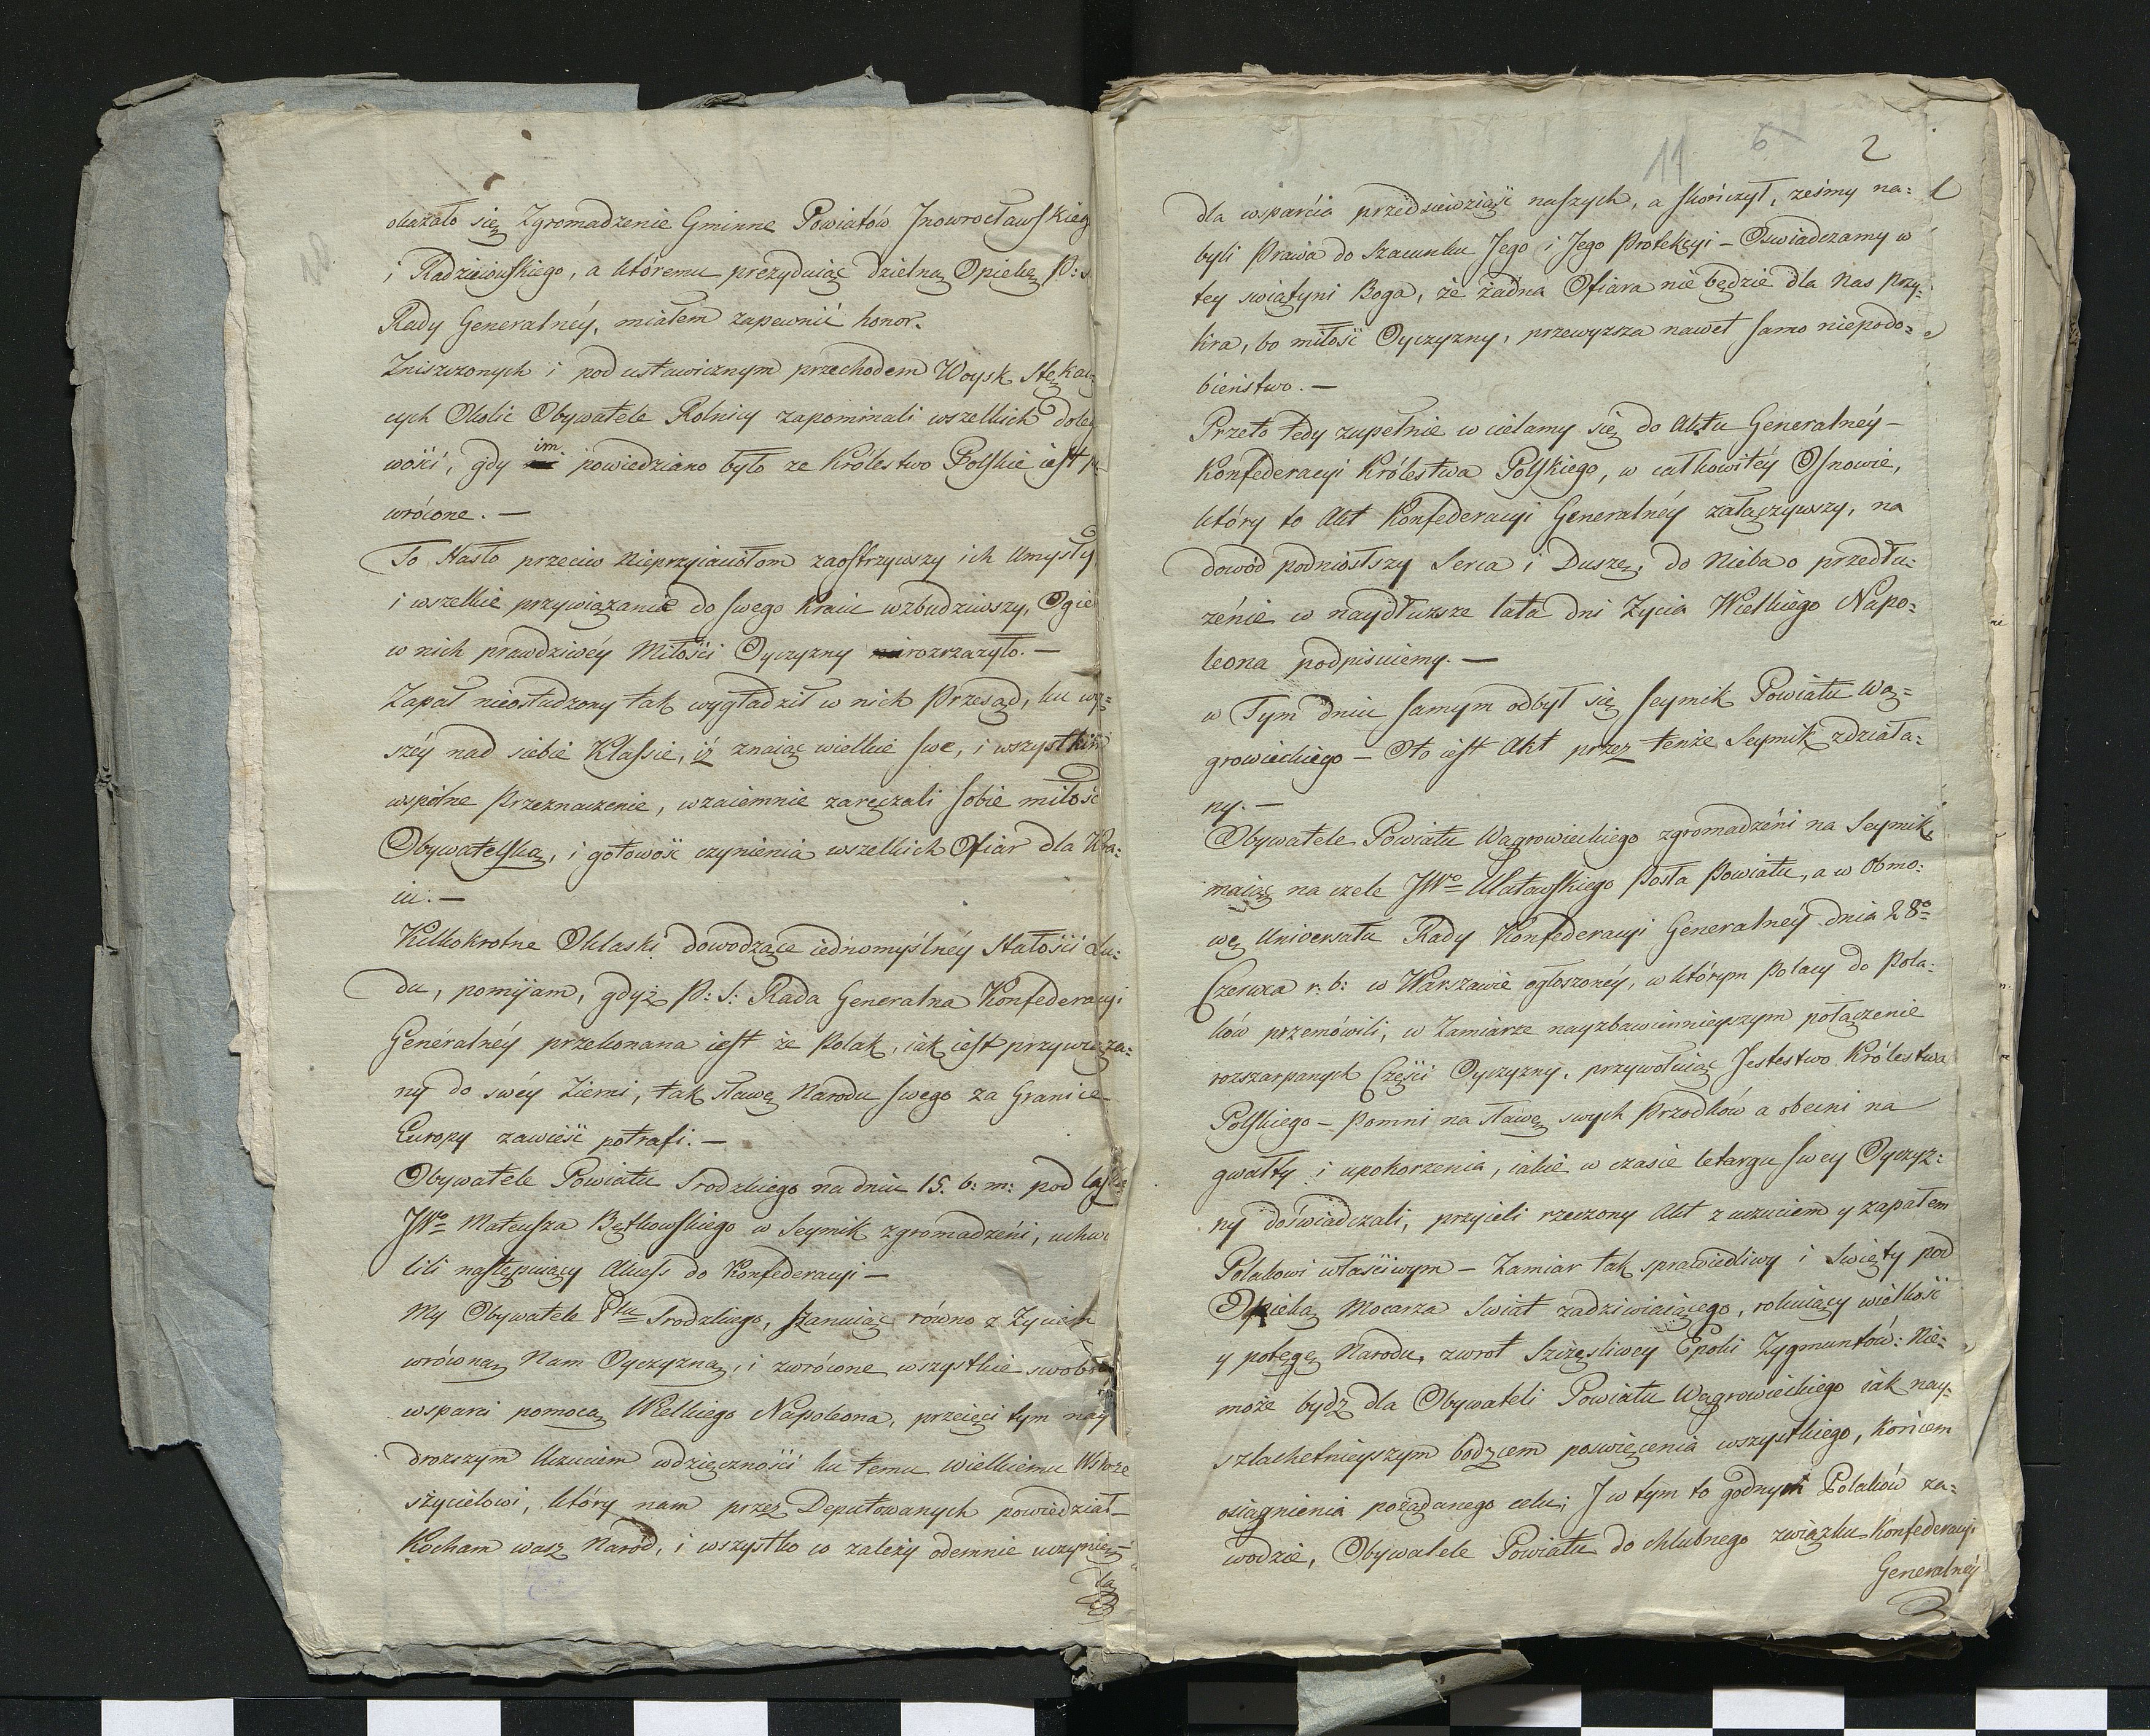 okazało się Zgromadzenie Gminne Powiatów Jnowrocławskieg
i Radzieiowskiego, a któremu prezyduiąc dzielną Opieką P: s
Rady Generalnéy, miałem zapewnić honor.
Zniszczonych i pod ustawicznym przechodem Woysk Stękaią
cych Okolic Obywatele Rolnicy zapominali wszelkich doleg
wości, gdy im powiedziano było ze Królestwo Polskie iest p
wrócone. —
To Hasło przeciw Nieprzyiaciołom zaostrzywszy ich Umysły
i wszelkie przywiązanie do swego Kraiu wzbudziwszy, Ogie
w nich prawdziwéy Miłości Oyczyzny rozrzażyło. —
Zapał nieostudzony tak wygładził w nich Przesąd, ku wy=
széy nad siebie Klassie, iż znaiąc wielkie swe, i wszystkim
wspólne Przeznaczenie, wzaiemnie zaręczali sobie miłość
Obywatelską, i gotowość czynienia wszelkich Ofiar dla Kra=
iu. —
Kilkokrotne Oklaski dowodzące iednomyślnéy Stałości Lu=
du, pomijam, gdyż P: S: Rada Generalna Konfederacyi
Generalnéy przekonana iest że Polak, iak iest przywiąza=
ny do swéy Ziemi, tak sławę Narodu swego za Granice
Europy zawieść potrafi. —
Obywatele Powiatu Srodzkiego na dniu 15. b: m: pod las
JWo Mateusza Bętkowskiego w Seymik zgromadzeni, uchwa
lili następuiący Akcess do Konfederacyi —
My Obywatele Ptu Srodzkiego, szanuiąc równo z Zyciem
wrówną Nam Oyczyzną, i zwrócone wszystkie swobo
wsparci pomocą Wielkiego Napoleona, przeięci tym nay
drozszym Uczuciem wdzięczności ku temu wielkiemu Wskrze
sżycielowi, który nam przez Deputowanych powiedział —
Kocham wasz Naród, i wszystko co zależy odemnie uczynię —
dla
11 6 2
dla wsparcia przedsiewzięć naszych, a skończył, ześmy na=
byli Prawa do Szacunku Jego i Jego Protekcyi — Oswiadczamy w
tey swiątyni Boga, że żadna Ofiara nie będzie dla Nas przy=
kra, bo miłość Oyczyzny, przewyzsza nawet samo niepodo=
bieństwo. —
Przeto tedy zupełnie wcielamy się do Aktu Generalnéy —
Konfederacyi Królestwa Polskiego, w całkowitéy Osnowie,
który to Akt Konfederacyi Generalnéy załączywszy, na
dowód podniosłszy Serca i Duszę, do Nieba o przedłu=
żénie w naydłuższe lata dni Życia Wielkiego Napo=
leona podpisuiemy. —
w Tym dniu samym odbył się Seymik Powiatu Wą=
growieckiego — Oto iest Akt przez tenże Seymik zdziała=
ny. —
Obywatele Powiatu Wągrowieckiego zgromadzéni na Seymik,
maiąc na czele JWo Ułatowskiego Posła Powiatu, a w Obmo=
wę Uniwersału Rady Konfederacyi Generalnéy dnia 28o
Czerwca r. b: w Warszawie ogłoszonéy, w którym Polacy do Pola=
ków przemówili; w Zamiarze nayzbawiennieyszym połączenie
rozszarpanych Części Oyczyzny, przywołuiąc Jestestwo Królestwa
Polskiego — Pomni na sławę swych Przodków a obecni na
gwałty i upokorzenia, iakie w czasie letargu swey Oyczyz=
ny doświadczali, przyieli rzeczony Akt z uczuciem y zapałem
Polakowi właściwym — Zamiar tak sprawiedliwy i Swięty pod
Opieką Mocarza Swiat zadziwiaiącego, rokuiący wielkość
y potęgę Narodu, zwrot Szczęsliwey Epoki Zygmuntów: Nie=
może bydź dla Obywateli Powiatu Wągrowieckiego iak nay=
szlachetnieyszym bodzcem poswięcenia wszystkiego, Końcem
osiągnienia pożądanego celu; J w tym to godnym Polaków za=
wodzie, Obywatele Powiatu do chlubnego związku Konfederacyi
Generalnéy